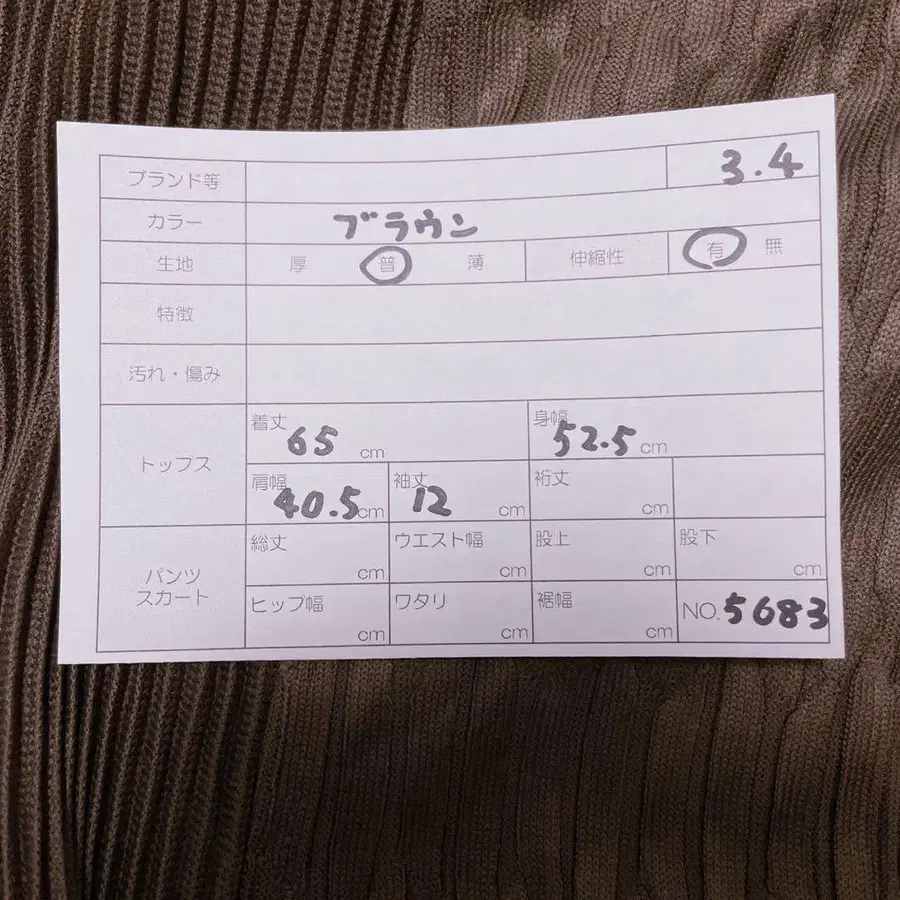 ブランド等 3.4
カラー ブラウン
生地 厚 普 薄 伸縮性 有 無
特徴
汚れ・傷み
トップス
着丈 65 cm 身幅 52.5 cm
肩幅 40.5 cm 袖丈 12 cm 裄丈 cm
パンツ
スカート
総丈 cm ウエスト幅 cm 股上 cm 股下 cm
ヒップ幅 cm ワタリ cm 裾幅 cm NO. 5683